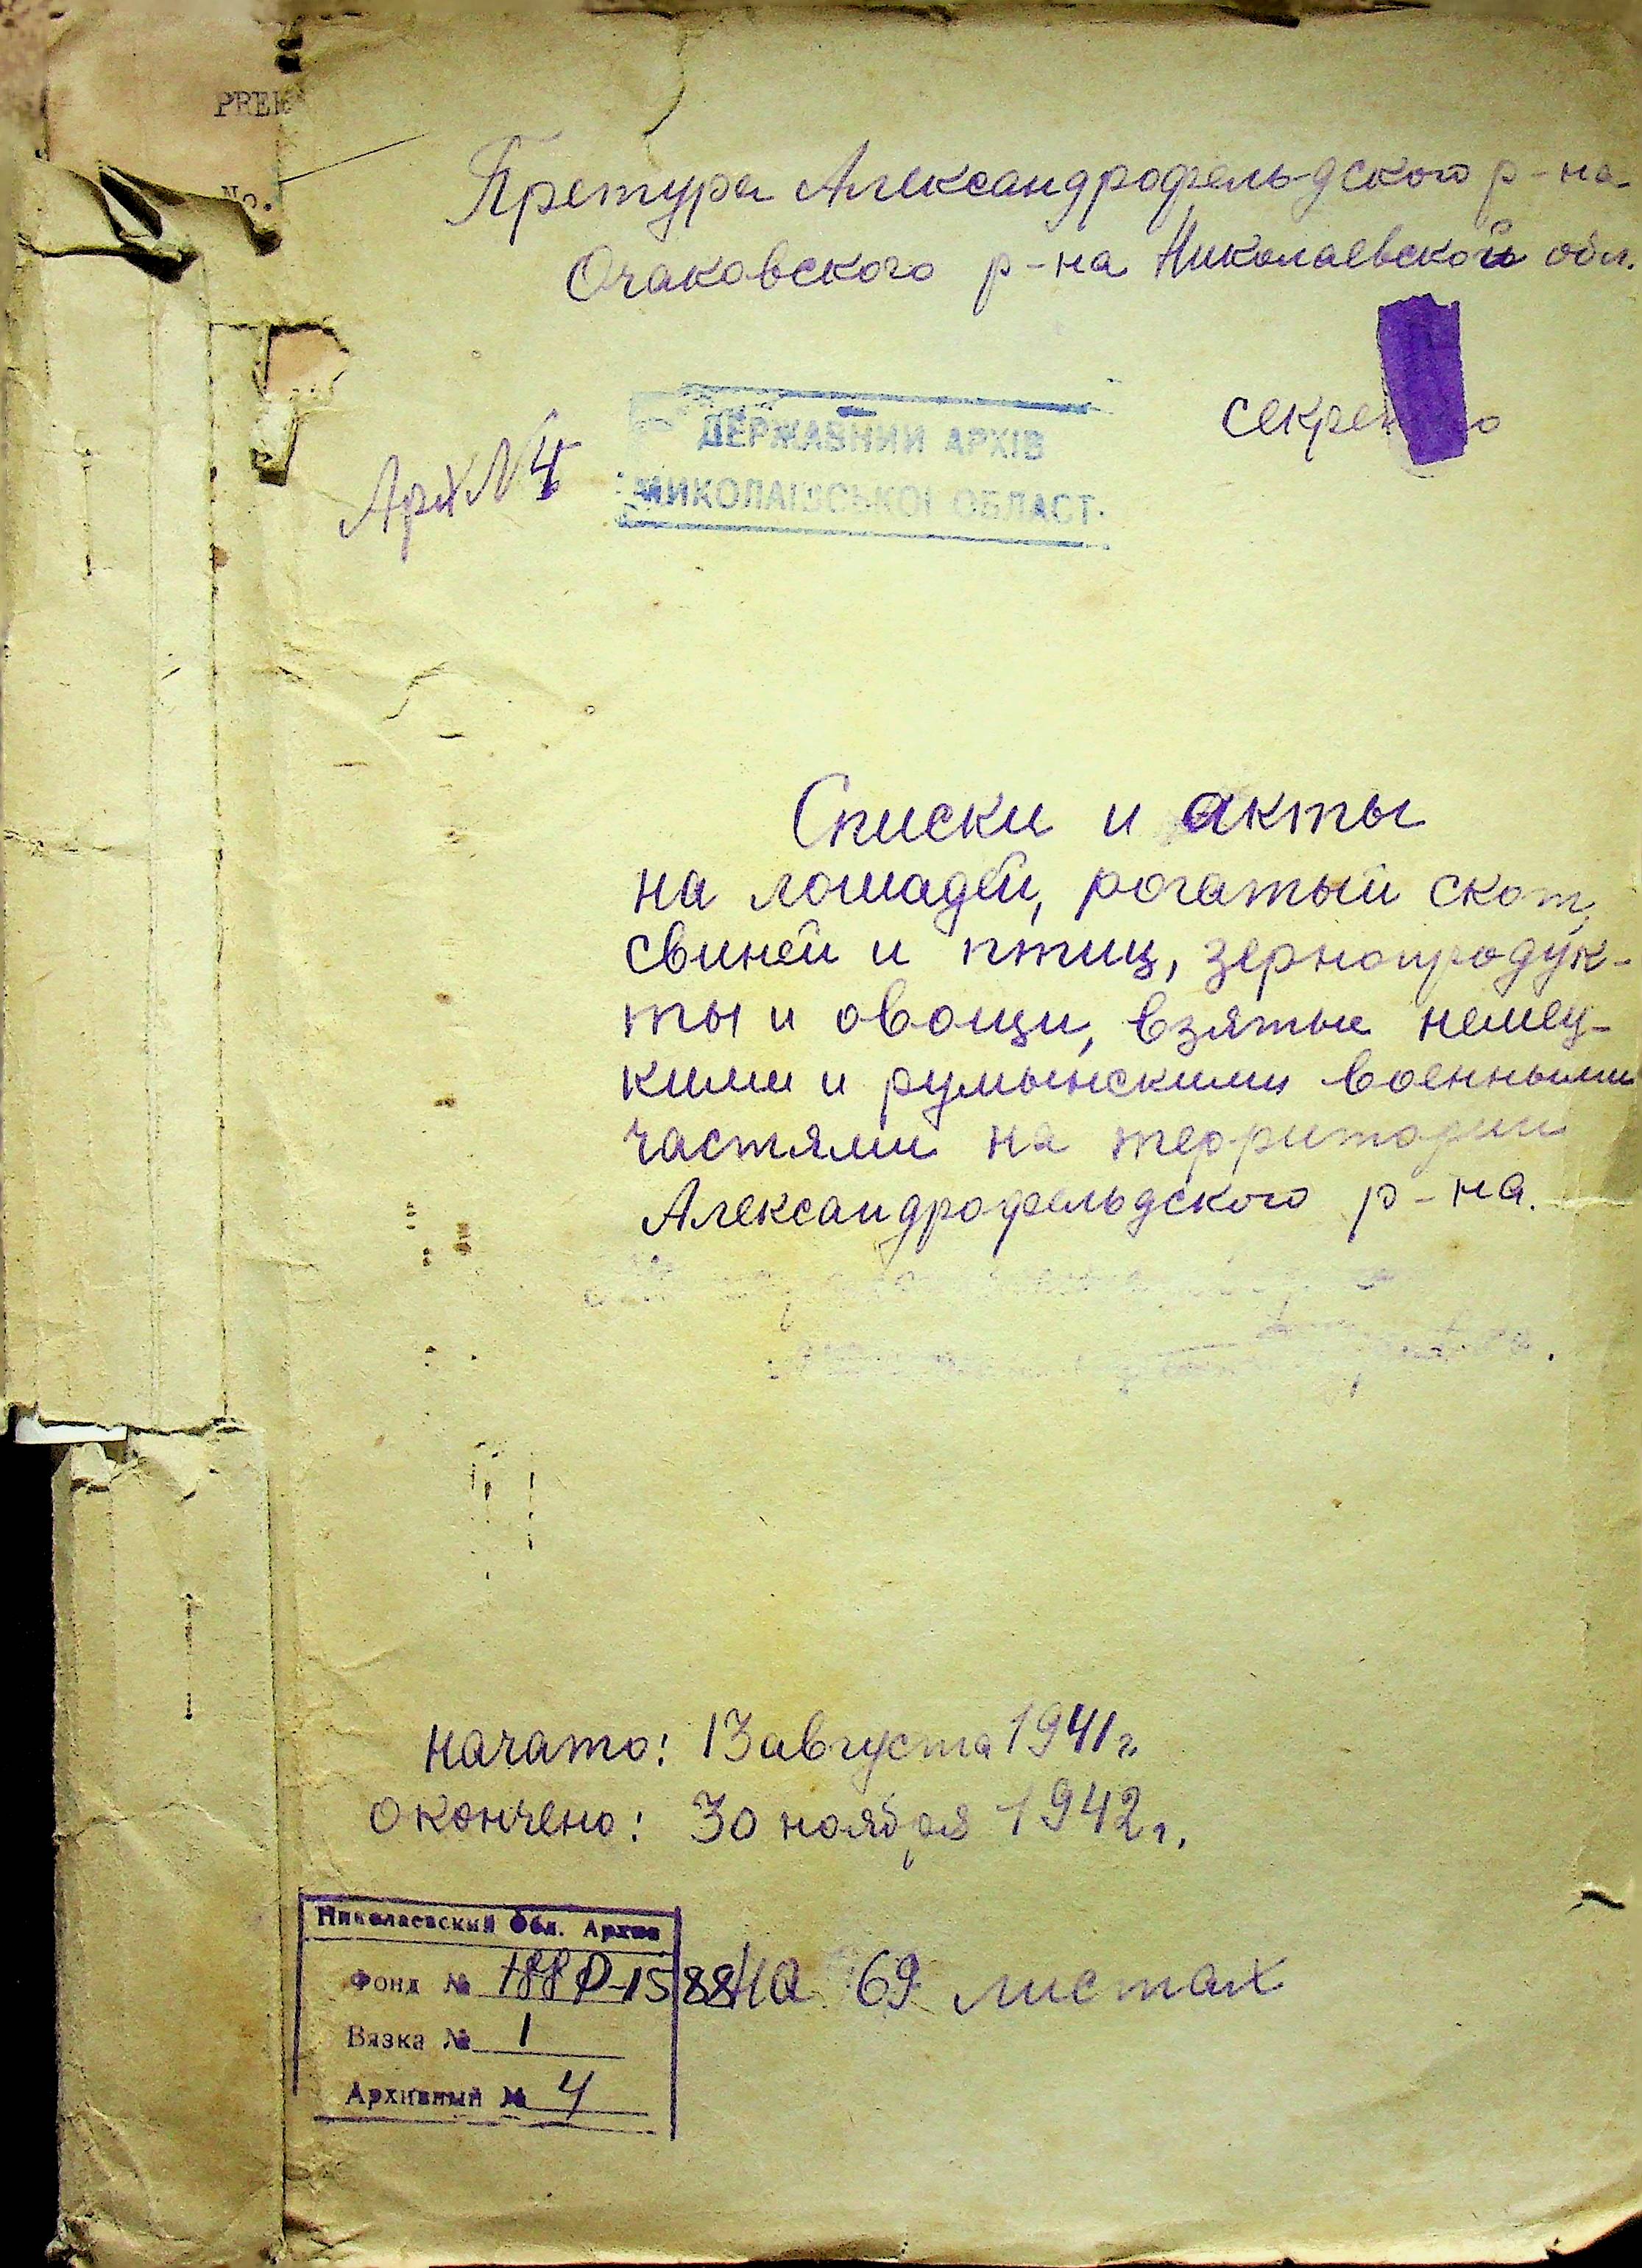 PRE
No.
Претура Александрофельдского р-на
Очаковского р-на Николаевской обл.
секре о
Арх № 4
ДЕРЖАВНИЙ АРХІВ
МИКОЛАЇВСЬКОЇ ОБЛАСТ
Списки и акты
на лошадей, рогатый скот,
свиней и птиц, зернопродук-
ты и овощи, взятые немец-
кими и румынскими военными
частями на территории
Александрофельдского р-на.
начато: 13 августа 1941 г.
окончено: 30 ноября 1942 г.
Николаевский Обл. Архив
Фонд № 188 Р-1588 на 69 листах
Вязка № 1
Архивный № 4